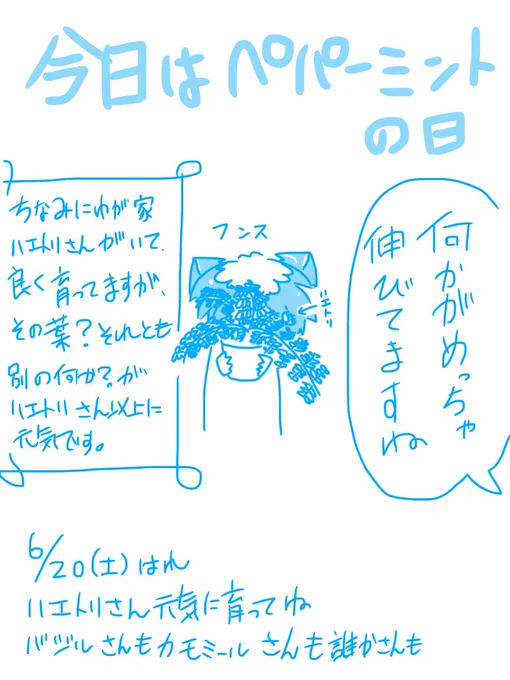 今日はペパーミント
の日
何かがめっちゃ
伸びてますね
フンス
ハエトリ
ちなみにわが家
ハエトリさんがいて、
良く育ってますが、
その葉？それとも
別の何か？が
ハエトリさん以上に
元気です。
6/20(土)はれ
ハエトリさん元気に育ってね
バジルさんもカモミールさんも誰かさんも